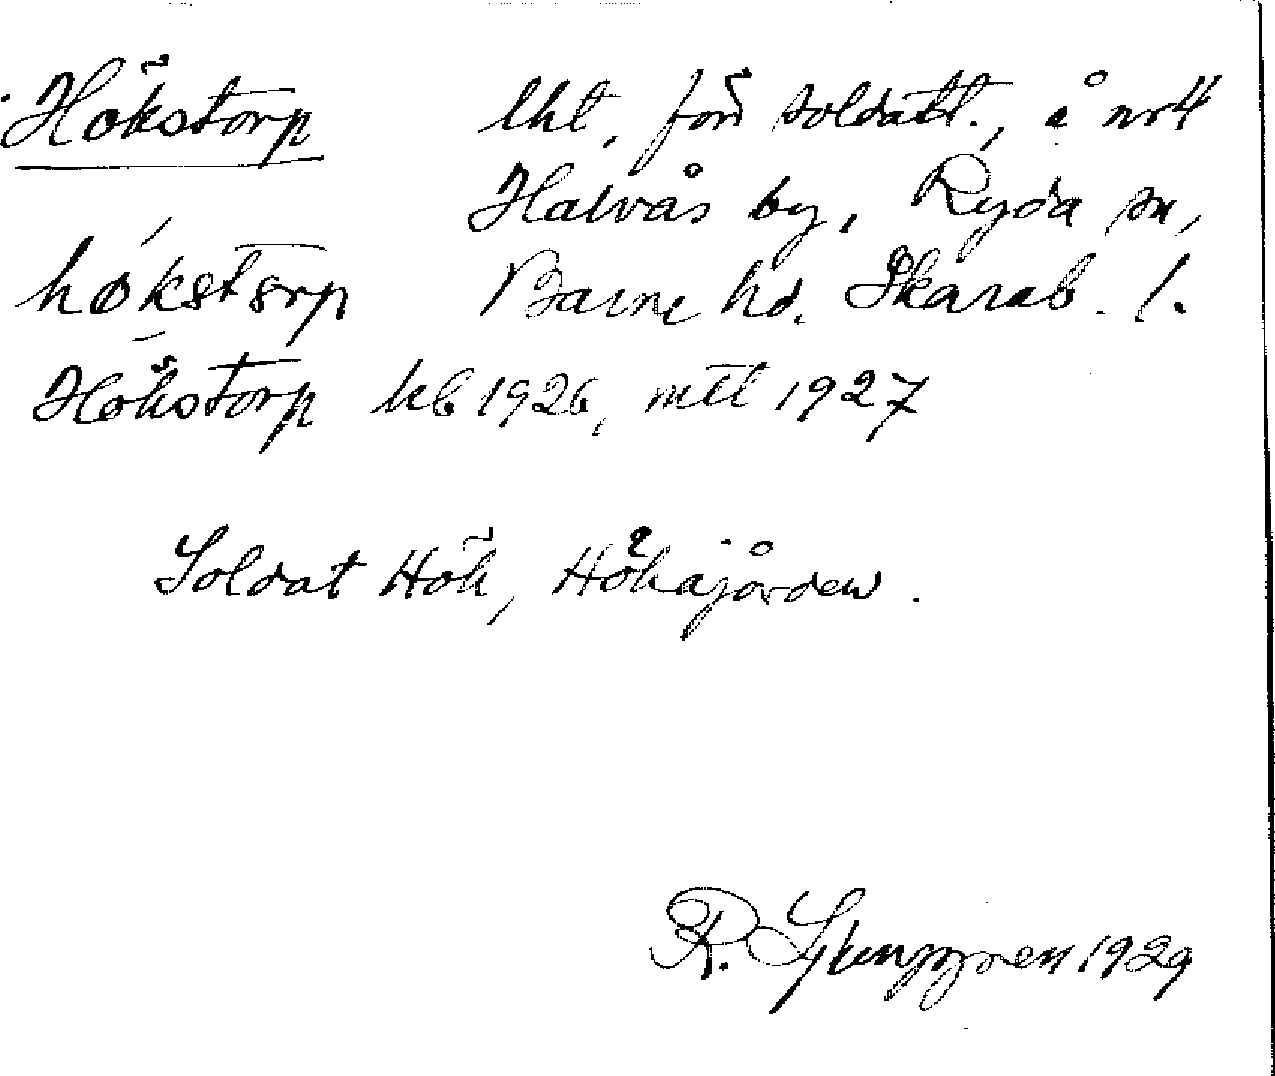 Hökstorp lht, förr soldatt., å nr 4
Halvås by, Ryda sn,
høkstorp Barne hd. Skarab. l.
Hökstorp kb 1926, mtl 1927
Soldat Hök, Hökajården.
R. Ljunggren 1929